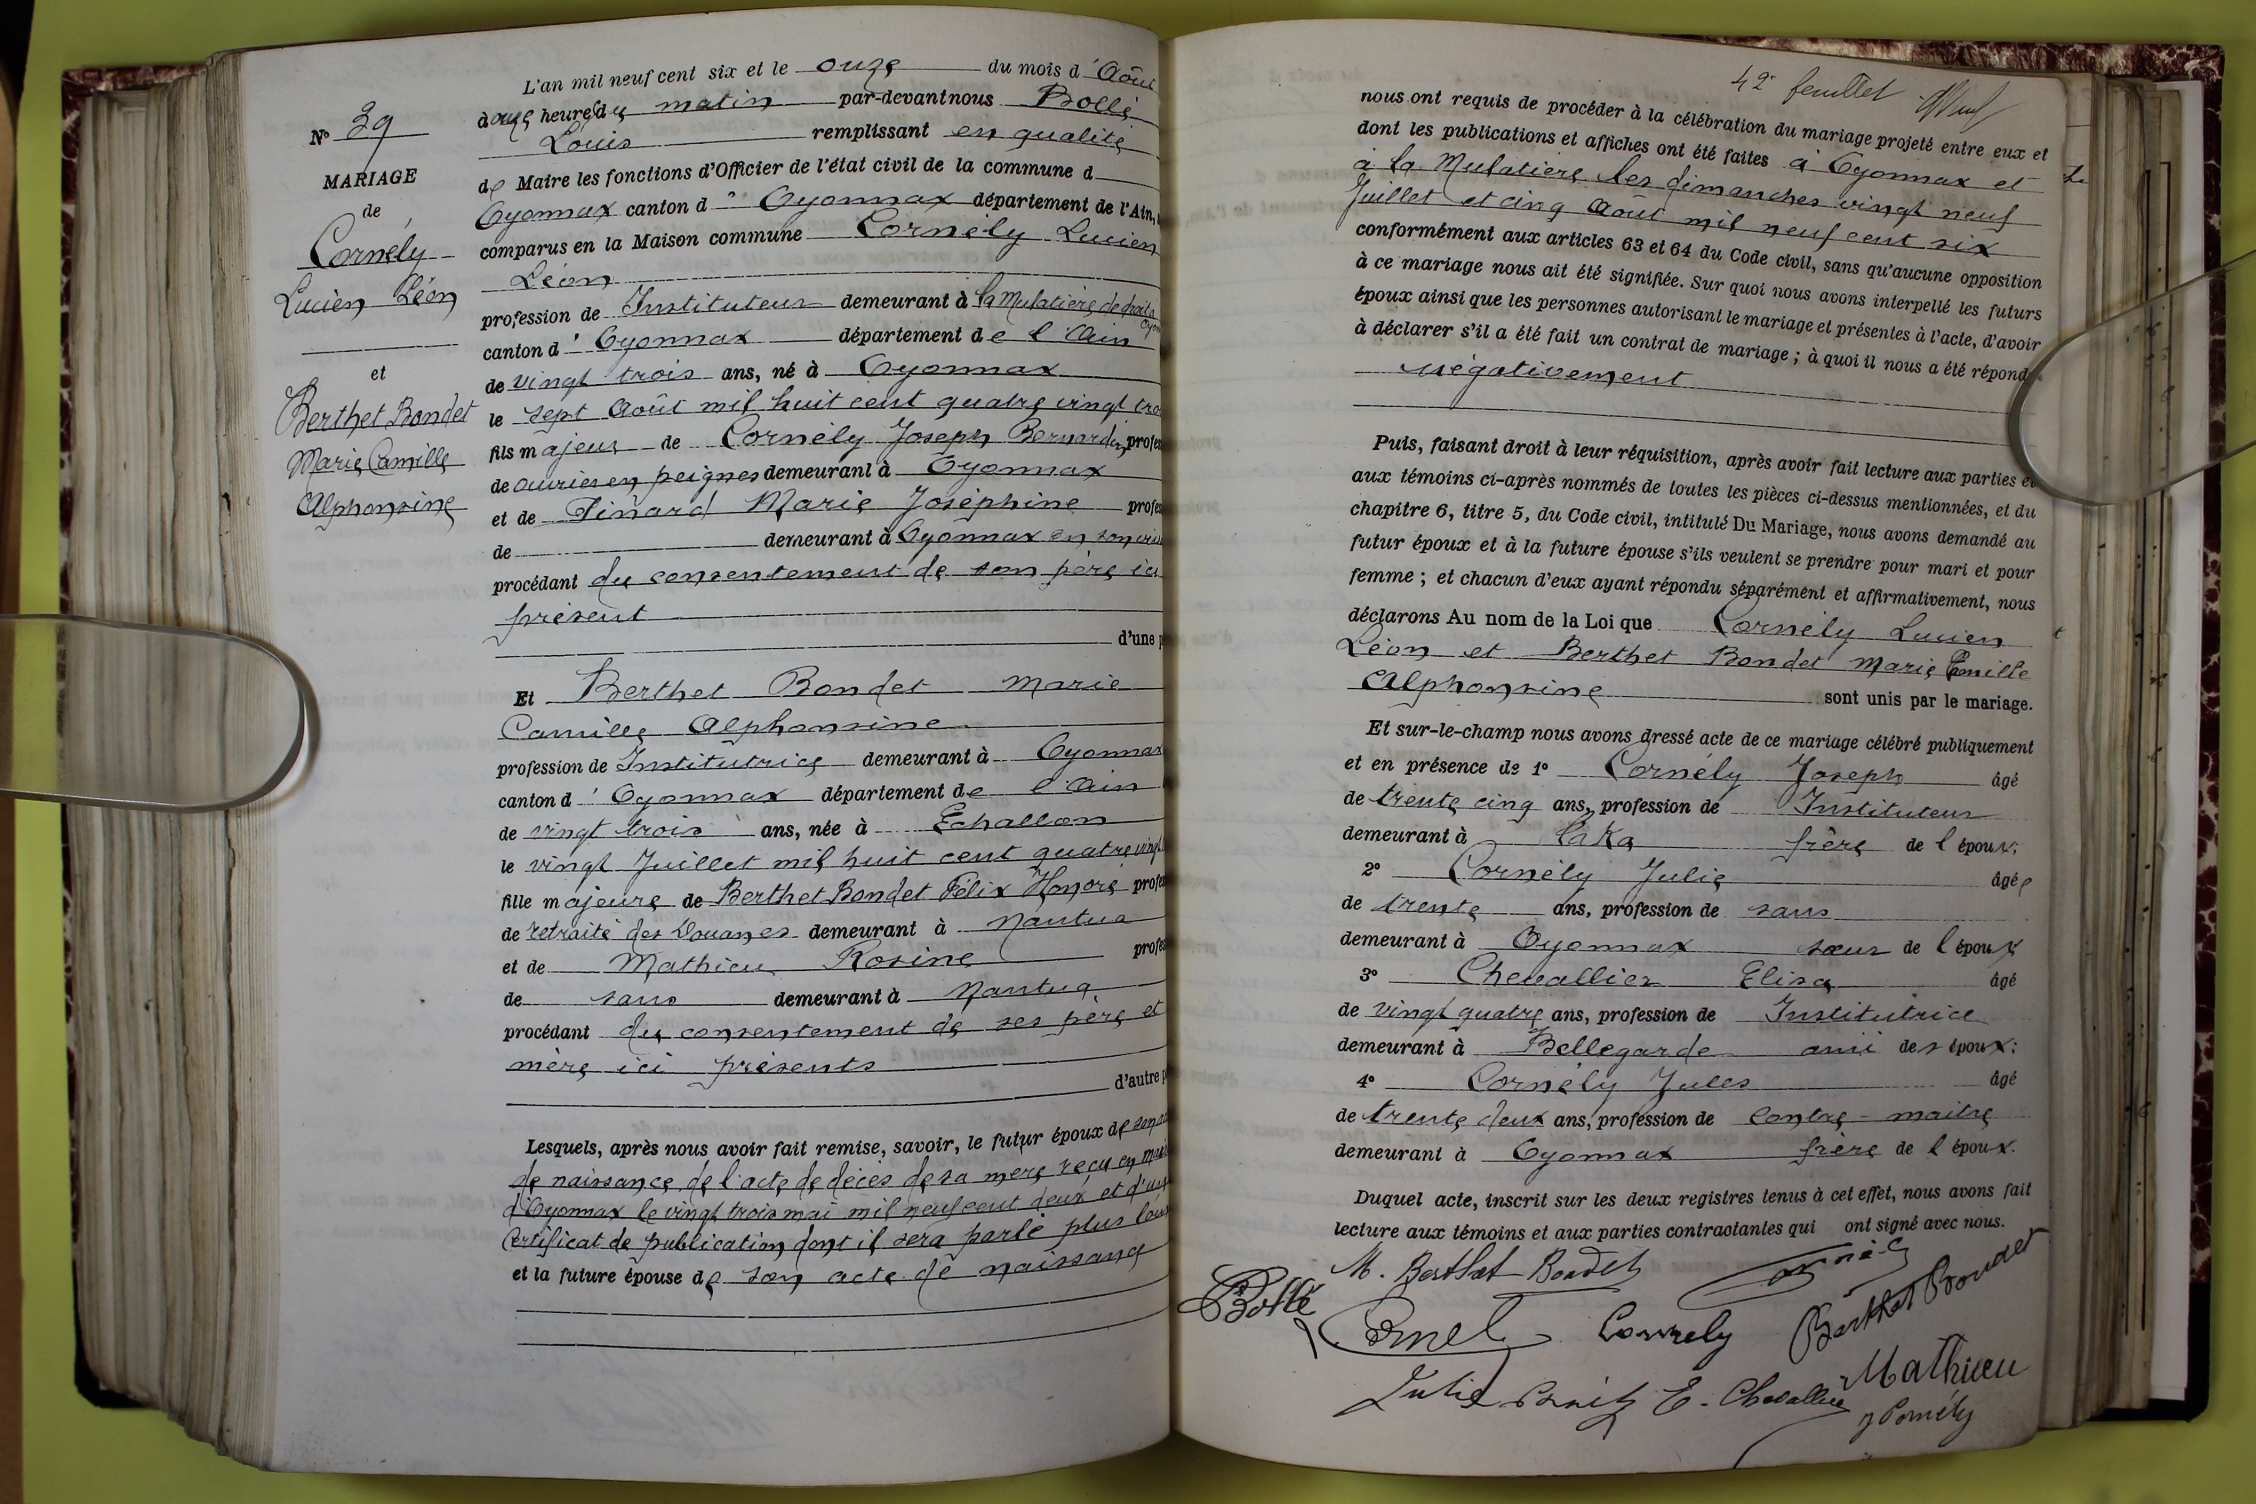 L'an mil neuf cent six et le onze du mois d'Août
à onze heures du matin par-devant nous Bollé
Louis remplissant en qualité
de Maire les fonctions d'Officier de l'état civil de la commune d
Oyonnax canton d'Oyonnax département de l'Ain,
comparus en la Maison commune Cornély Lucien
Léon
profession de Instituteur demeurant à la Mulatière de droit à
Oyon
canton d'Oyonnax département de l'Ain
de vingt trois ans, né à Oyonnax
le sept Août mil huit cent quatre vingt tro
fils majeur de Cornély Joseph Bernardin, profes
de ouvrier en peignes demeurant à Oyonnax
et de Finard Marie Joséphine profes
de demeurant à Oyonnax en son viv
procédant du consentement de son père ici
présent
d'une p
Et Berthet Bondet Marie
Camille Alphonsine
profession de Institutrice demeurant à Oyonnax
canton d'Oyonnax département de l'Ain
de vingt trois ans, née à Echallon
le vingt Juillet mil huit cent quatre vingt
fille majeure de Berthet Bondet Félix Honoré profes
de retraité des Douanes demeurant à Nantua
et de Mathieu Rosine profes
de sans demeurant à Nantua
procédant du consentement de ses père et
mère ici présents
d'autre p
Lesquels, après nous avoir fait remise, savoir, le futur époux de son
de naissance, de l'acte de décès de sa mère reçu en mai
d'Oyonnax le vingt trois mai mil neuf cent deux et d'un
certificat de publication dont il sera parlé plus loin
et la future épouse de son acte de naissance
N° 39
MARIAGE
de
Cornély
Lucien Léon
et
Berthet Bondet
Marie Camille
Alphonsine
42e feuillet
nous ont requis de procéder à la célébration du mariage projeté entre eux et
dont les publications et affiches ont été faites à Oyonnax et
à la Mulatière les dimanches vingt neuf
Juillet et cinq Août mil neuf cent six
conformément aux articles 63 et 64 du Code civil, sans qu'aucune opposition
à ce mariage nous ait été signifiée. Sur quoi nous avons interpellé les futurs
époux ainsi que les personnes autorisant le mariage et présentes à l'acte, d'avoir
à déclarer s'il a été fait un contrat de mariage ; à quoi il nous a été répond
négativement
Puis, faisant droit à leur réquisition, après avoir fait lecture aux parties et
aux témoins ci-après nommés de toutes les pièces ci-dessus mentionnées, et du
chapitre 6, titre 5, du Code civil, intitulé Du Mariage, nous avons demandé au
futur époux et à la future épouse s'ils veulent se prendre pour mari et pour
femme ; et chacun d'eux ayant répondu séparément et affirmativement, nous
déclarons Au nom de la Loi que Cornély Lucien
Léon et Berthet Bondet Marie Camille
Alphonsine sont unis par le mariage.
Et sur-le-champ nous avons dressé acte de ce mariage célébré publiquement
et en présence de 1° Cornély Joseph âgé
de trente cinq ans, profession de Instituteur
demeurant à frère de l'époux;
2° Cornély Julie âgée
de trente ans, profession de sans
demeurant à Oyonnax sœur de l'époux
3° Chevallier Elisa âgé
de vingt quatre ans, profession de Institutrice
demeurant à Bellegarde amie des époux;
4° Cornély Jules âgé
de trente deux ans, profession de contre-maître
demeurant à Oyonnax frère de l'époux.
Duquel acte, inscrit sur les deux registres tenus à cet effet, nous avons fait
lecture aux témoins et aux parties contractantes qui ont signé avec nous.
M. Berthet Bondet
Bollé
Berthet Bondet
Cornely
Mathieu
Julie E. Chevallier
J Cornély